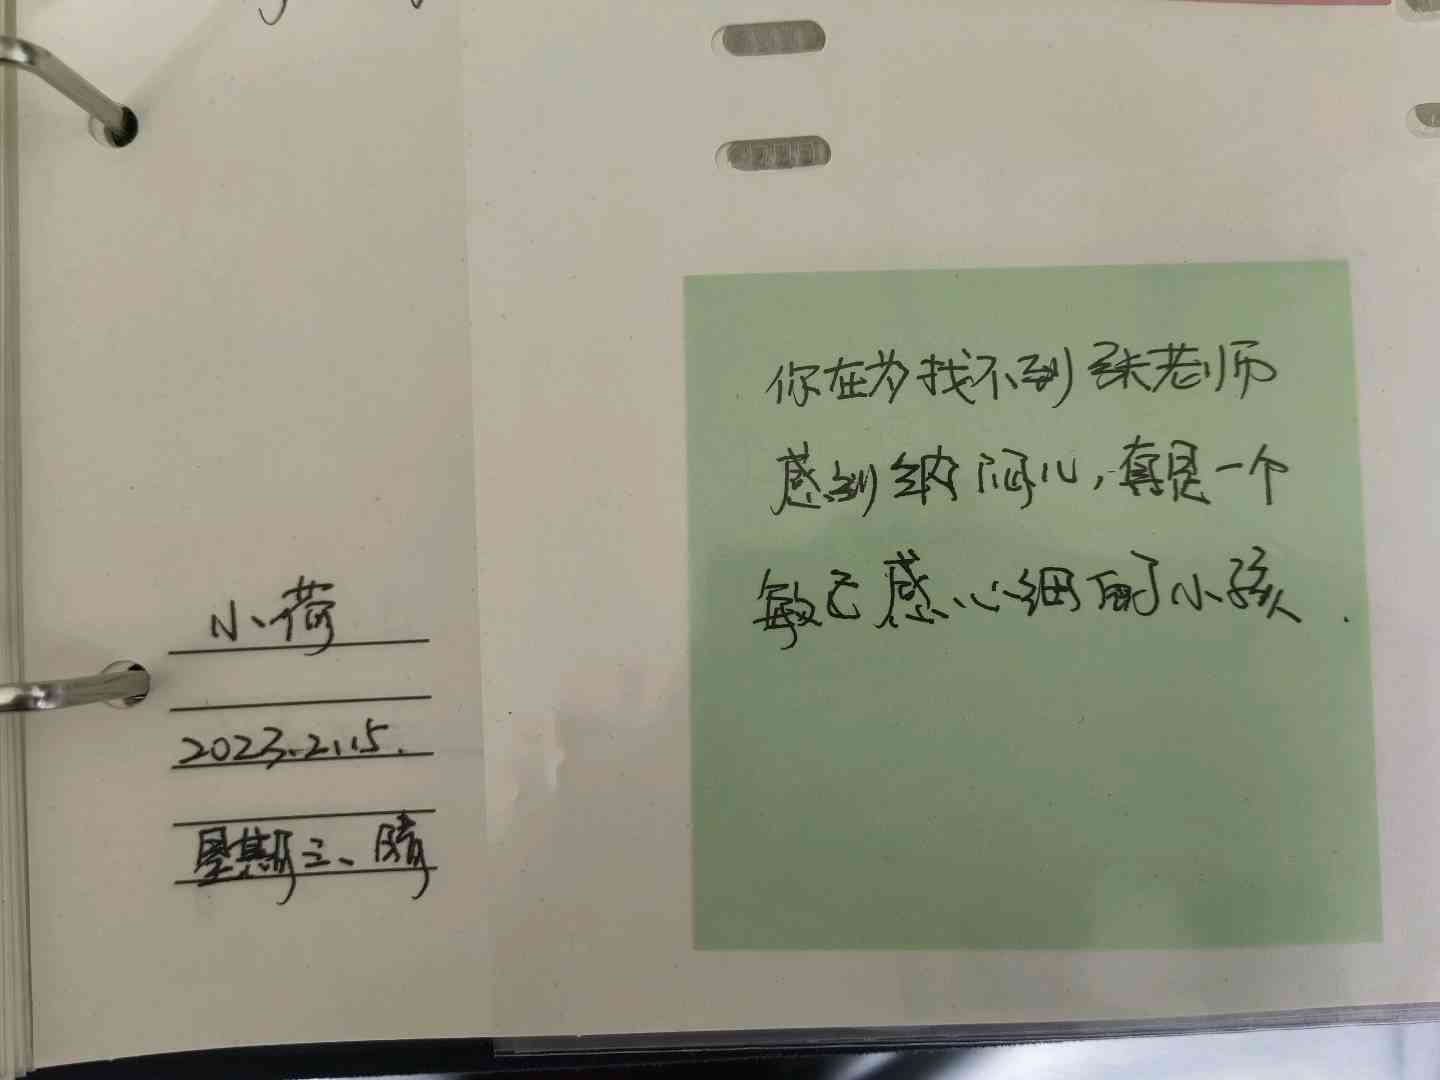 小荷
2023.2.15.
星期三、晴
你在为找不到张老师
感到纳闷儿,真是一个
敏感心细的小孩.